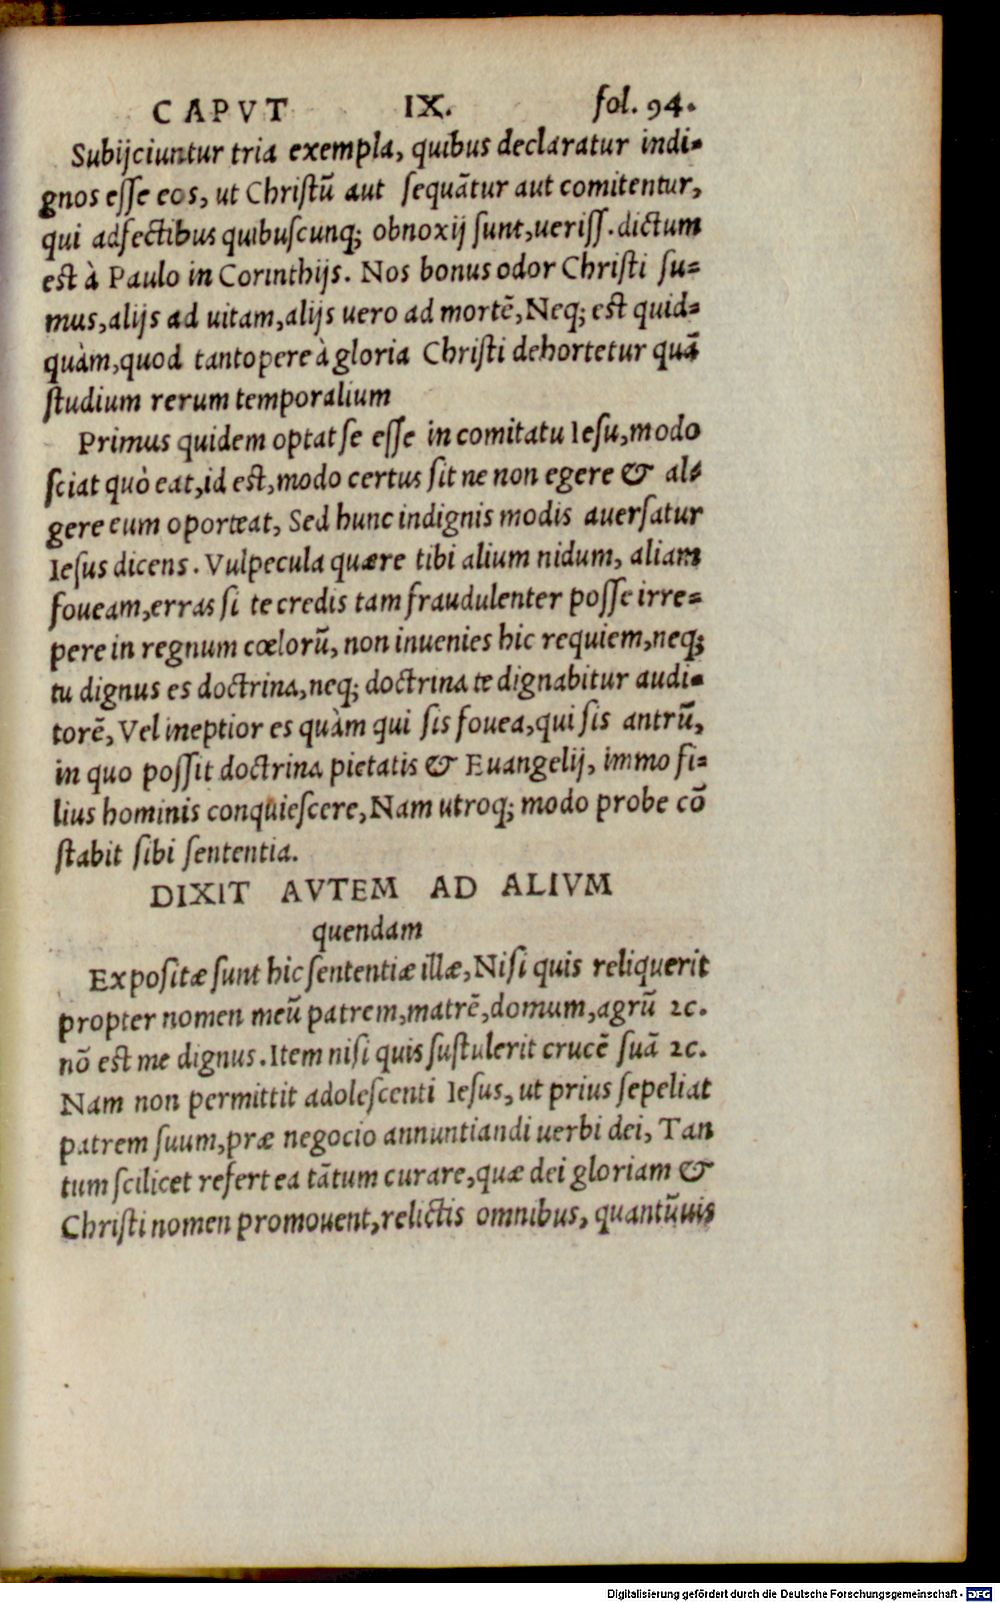 CAPVT IX. fol. 94.
Subijciuntur tria exempla, quibus declaratur indi-
gnos eſſe eos, ut Chriſtū aut ſequātur aut comitentur,
qui adfectibus quibuſcunq; obnoxij ſunt, ueriſſ. dictum
eſt à Paulo in Corinthijs. Nos bonus odor Chriſti ſu-
mus, alijs ad uitam, alijs uero ad mortē, Neq; eſt quid-
quàm, quod tantopere à gloria Chriſti dehortetur quā
ſtudium rerum temporalium
Primus quidem optat ſe eſſe in comitatu Ieſu, modo
ſciat quò eat, id eſt, modo certus ſit ne non egere & al-
gere eum oporteat, Sed hunc indignis modis auerſatur
Ieſus dicens. Vulpecula quære tibi alium nidum, aliam
foueam, erras ſi te credis tam fraudulenter poſſe irre-
pere in regnum cœlorū, non inuenies hic requiem, neq;
tu dignus es doctrina, neq; doctrina te dignabitur audi-
torē, Vel ineptior es quàm qui ſis fouea, qui ſis antrū,
in quo poſſit doctrina pietatis & Euangelij, immo fi-
lius hominis conquieſcere, Nam utroq; modo probe cō
ſtabit ſibi ſententia.
DIXIT AVTEM AD ALIVM
quendam
Expoſitæ ſunt hic ſententiæ illæ, Niſi quis reliquerit
propter nomen meū patrem, matrē, domum, agrū ⁊c.
nō eſt me dignus. Item niſi quis ſuſtulerit crucē ſuā ⁊c.
Nam non permittit adoleſcenti Ieſus, ut prius ſepeliat
patrem ſuum, præ negocio annuntiandi uerbi dei, Tan
tum ſcilicet refert ea tātum curare, quæ dei gloriam &
Chriſti nomen promouent, relictis omnibus, quantūuis
Digitalisierung gefördert durch die Deutsche Forschungsgemeinschaft - DFG